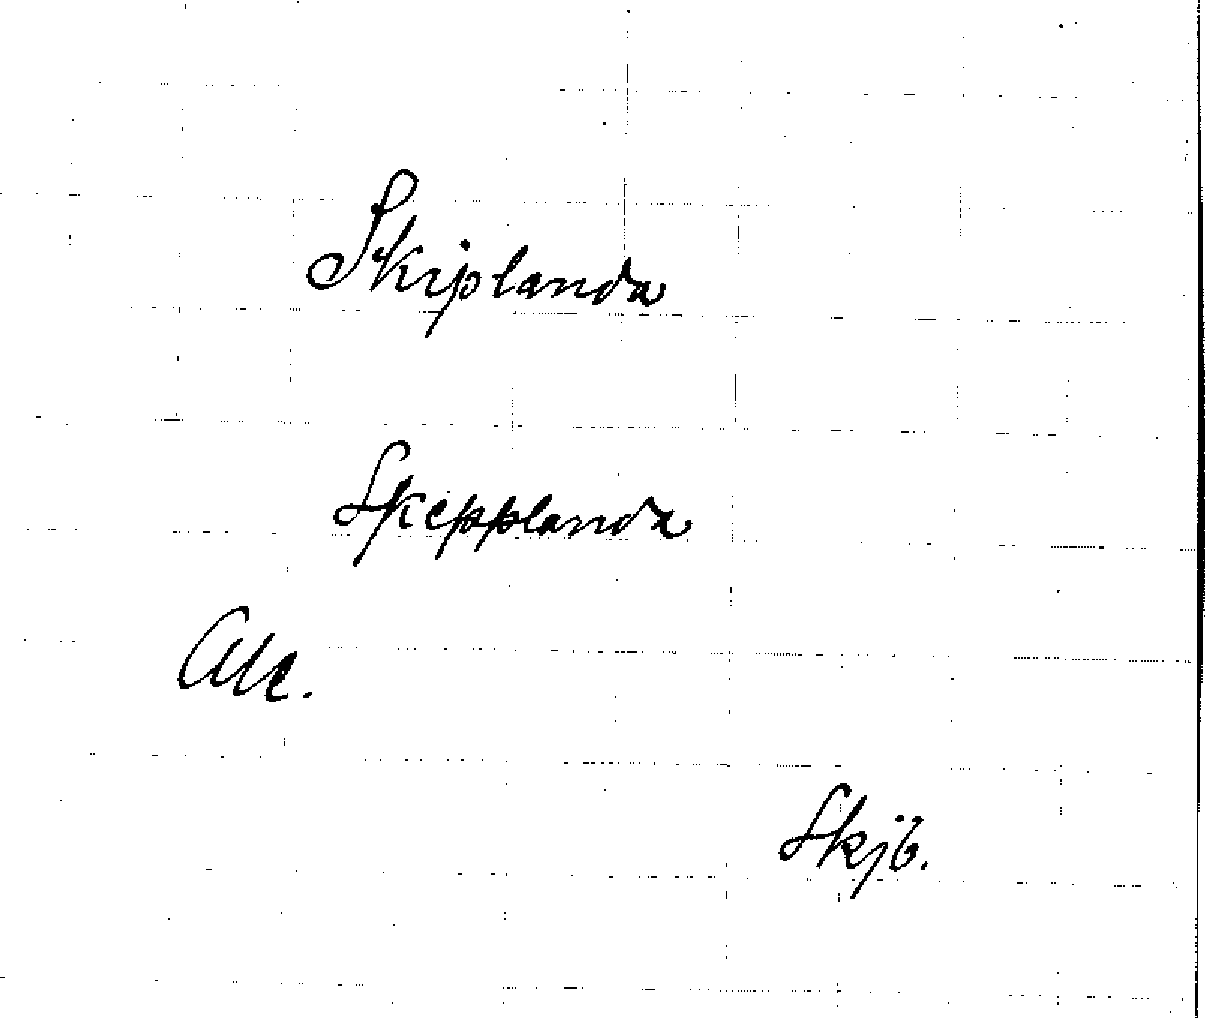 Skiplanda
Skepplanda
Ale.
Skjö.